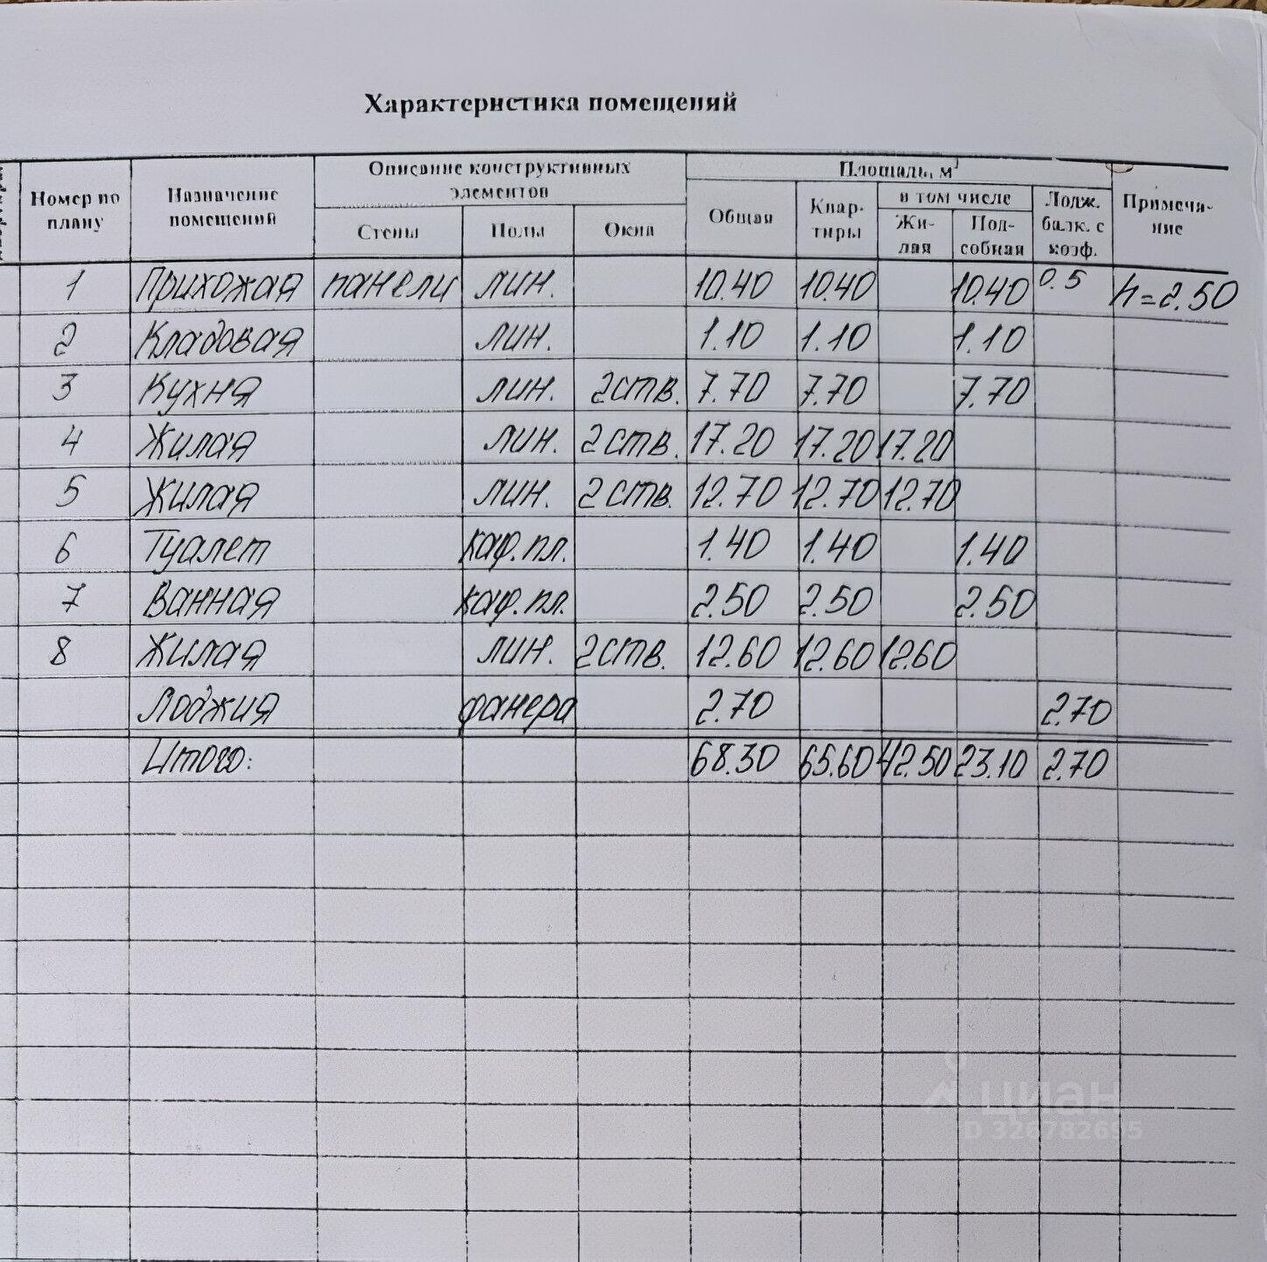 Характеристика помещений
Номер по плану | Назначение помещений | Описание конструктивных элементов | Площадь, м² | Примеча-ние
Стены | Полы | Окна | Общая | Квар-тиры | в том числе | Лодж. балк. с коэф.
Жи-лая | Под-собная
1 Прихожая панели лин. 10.40 10.40 10.40 0.5 h=2.50
2 Кладовая лин. 1.10 1.10 1.10
3 Кухня лин. 2ств. 7.70 7.70 7.70
4 Жилая лин. 2ств. 17.20 17.20 17.20
5 Жилая лин. 2ств. 12.70 12.70 12.70
6 Туалет каф.пл. 1.40 1.40 1.40
7 Ванная каф.пл. 2.50 2.50 2.50
8 Жилая лин. 2ств. 12.60 12.60 12.60
Лоджия фанера 2.70 2.70
Итого: 68.30 65.60 42.50 23.10 2.70
циан
D 326782695